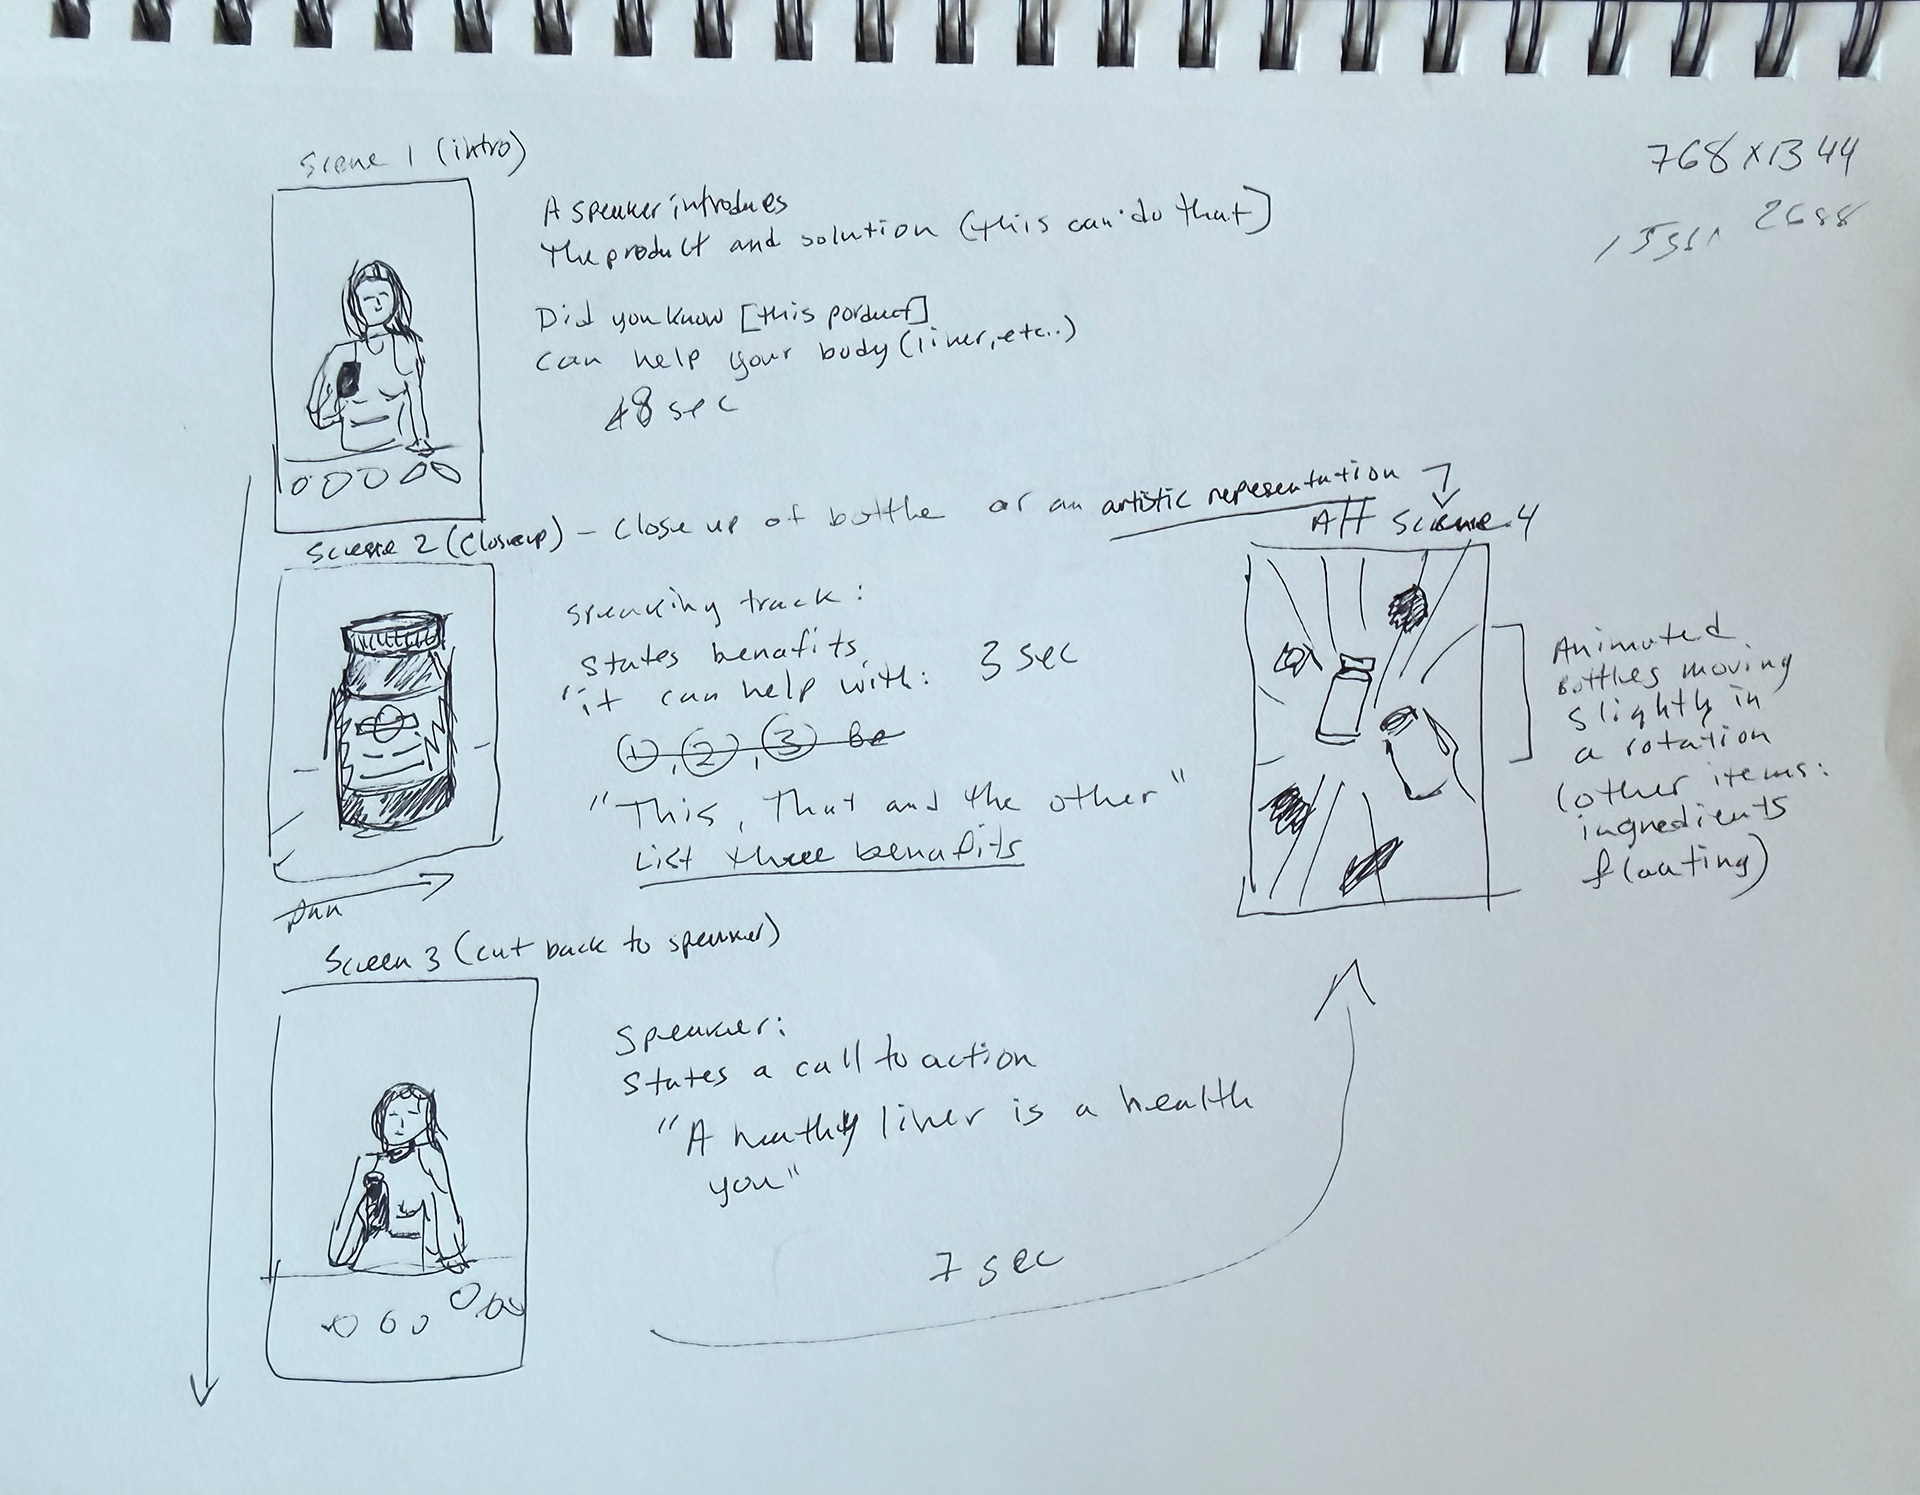 768 x 1344
2688
Scene 1 (intro)
A speaker introduces
the product and solution (this can do that]
Did you know [this porduct]
can help your body (liver, etc..)
8 sec
Scene 2 (Closeup) - Close up of bottle or an artistic representation
Alt Scene 4
speaking track:
states benefits
"it can help with: 3 sec
1, 2, 3 Be
"This, That and the other"
List three benefits
pan
Animated
bottles moving
slightly in
a rotation
(other items:
ingredients
floating)
Screen 3 (cut back to speaker)
Speaker:
States a call to action
"A healthy liver is a health
you"
7 sec